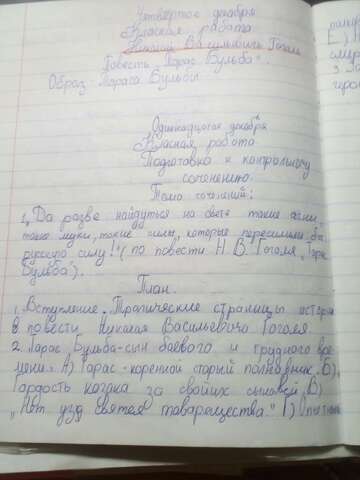 Четвёртое декабря
Класная работа
Николай Васильевич Гоголь
Повесть „Тарас Бульба".
Образ Тараса Бульбы
Одинадцатое декабря
Класная работа
Подготовка к контрольному
соченению
Тема сочений:
„Да разве найдуться на свете такие огни,
такие муки, такие силы, которые пересилили бы
русскую силу!" (по повести Н. В. Гоголя „Тарас
Бульба").
План.
1. Вступление. Трагические страницы истории
в повести Николая Васильевича Гоголя.
2. Тарас Бульба-сын боевого и трудного вре
мени. А) Тарас - коренной старый полковник. Б)
Гордость козака за свойих сыновей. В)
„Нет уз святея товарещества." Г)